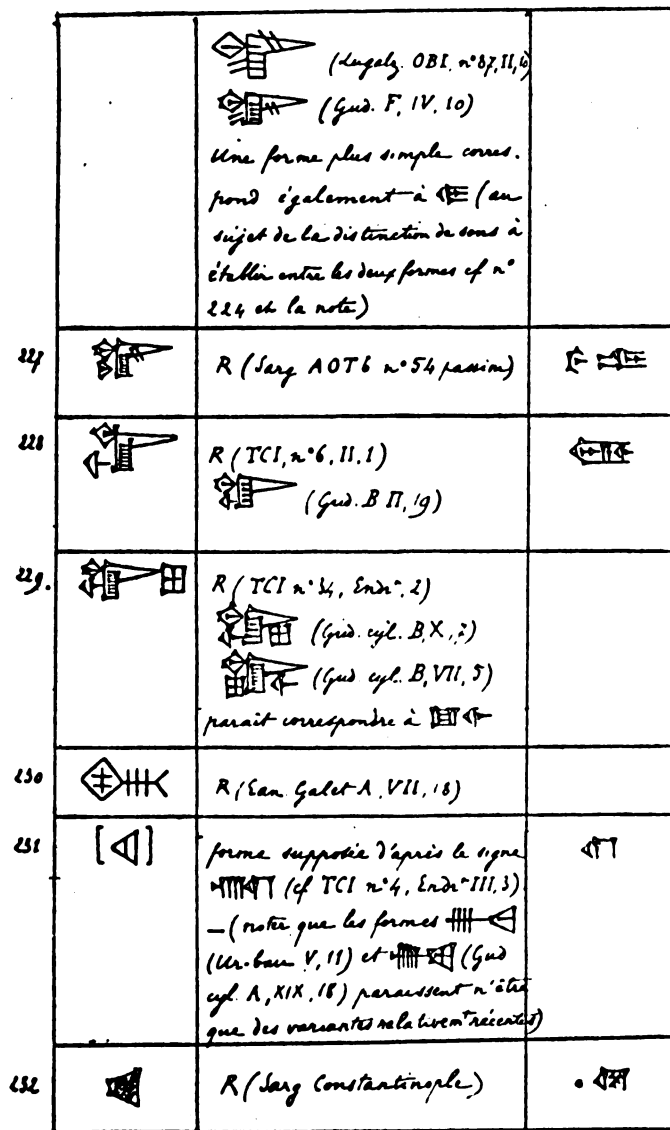 (Lugalz. OBI, n° 87, II, 10)
(Gud. F, IV, 10)
Une forme plus simple corres-
pond également à (au
sujet de la distinction de sens à
établir entre les deux formes cf n°
224 et la note)
227 R (Sarg AOTb n° 54 passim)
228 R (TCI, n° 6, II, 1)
(Gud. B II, 19)
229. R (TCI n° 34, 2)
(Gud. cyl. B, X, 2)
(Gud cyl. B, VII, 5)
parait correspondre à
230 R (Ean. Galet A, VII, 18)
231 [ ] forme supposée d'après le signe
(cf TCI n° 4, III, 3)
— (noter que les formes
(Ur-bau V, 11) et (Gud
cyl. A, XIX, 18) paraissent n'être
que des variantes relativemt récentes)
232 R (Sarg Constantinople)